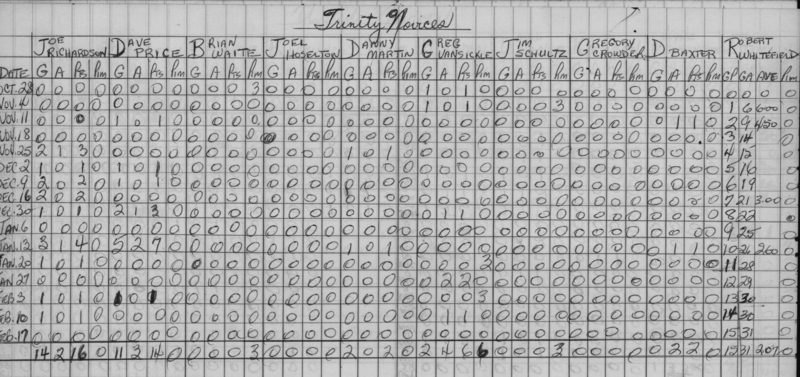 Trinity Novices
JOE RICHARDSON DAVE PRICE BRIAN WAITE JOEL HOSELTON DANNY MARTIN GREG VANSICKLE JIM SCHULTZ GREGORY CROWDER D BAXTER ROBERT WHITEFIELD
DATE G A Pts Pim G A Pts Pim G A Pts Pim G A Pts Pim G A Pts Pim G A Pts Pim G A Pts Pim G A Pts Pim G A Pts Pim GP GA AVE Pim
OCT. 28 0 0 0 0 0 0 0 0 0 0 0 3 0 0 0 0 0 0 0 0 1 0 1 0 0 0 0 0 0 0 0 0 0 0 0 0
NOV. 4 0 0 0 0 0 0 0 0 0 0 0 0 0 0 0 0 0 0 0 0 1 0 1 0 0 0 0 3 0 0 0 0 0 0 0 0 1 6 6.00 0
NOV. 11 0 0 0 0 1 0 1 0 0 0 0 0 0 0 0 0 0 0 0 0 0 0 0 0 0 0 0 0 0 0 0 0 0 1 1 0 2 9 4.50 0
NOV. 18 0 0 0 0 0 0 0 0 0 0 0 0 0 0 0 0 0 0 0 0 0 0 0 0 0 0 0 0 0 0 0 0 0 0 0 0 3 14 0
NOV. 25 2 1 3 0 0 0 0 0 0 0 0 0 0 0 0 0 1 0 1 0 0 0 0 0 0 0 0 0 0 0 0 0 0 0 0 0 4 0
DEC. 2 1 0 1 0 1 0 1 0 0 0 0 0 0 0 0 0 0 0 0 0 0 0 0 0 0 0 0 0 0 0 0 0 0 0 0 0 5 16 0
DEC. 9 2 0 2 0 1 0 1 0 0 0 0 0 0 0 0 0 0 0 0 0 0 0 0 0 0 0 0 0 0 0 0 0 0 0 0 0 6 19 0
DEC. 16 2 0 2 0 0 0 0 0 0 0 0 0 0 0 0 0 0 0 0 0 0 0 0 0 0 0 0 0 0 0 0 0 0 0 0 0 7 21 3.00 0
DEC. 30 1 0 1 0 2 1 3 0 0 0 0 0 0 0 0 0 0 0 0 0 0 1 1 0 0 0 0 0 0 0 0 0 0 0 0 0 8 22 0
JAN. 6 0 0 0 0 0 0 0 0 0 0 0 0 0 0 0 0 0 0 0 0 0 0 0 0 0 0 0 0 0 0 0 0 0 0 0 0 9 25 0
JAN. 13 3 1 4 0 5 2 7 0 0 0 0 0 0 0 0 0 1 0 1 0 0 0 0 0 0 0 0 0 0 0 0 0 0 1 1 0 10 26 2.60 0
JAN. 20 1 0 1 0 0 0 0 0 0 0 0 0 0 0 0 0 0 0 0 0 0 0 0 3 0 0 0 0 0 0 0 0 0 0 0 0 11 28 0
JAN. 27 0 0 0 0 0 0 0 0 0 0 0 0 0 0 0 0 0 0 0 0 0 2 2 0 0 0 0 0 0 0 0 0 0 0 0 0 12 29 0
FEB. 3 1 0 1 0 1 0 1 0 0 0 0 0 0 0 0 0 0 0 0 0 0 0 0 3 0 0 0 0 0 0 0 0 0 0 0 0 13 30 0
FEB. 10 1 0 1 0 0 0 0 0 0 0 0 0 0 0 0 0 0 0 0 0 0 1 1 0 0 0 0 0 0 0 0 0 0 0 0 0 14 30 0
FEB. 17 0 0 0 0 0 0 0 0 0 0 0 0 0 0 0 0 0 0 0 0 0 0 0 0 0 0 0 0 0 0 0 0 0 0 0 0 15 31 0
14 2 16 0 11 3 14 0 0 0 0 3 0 0 0 0 2 0 2 0 2 4 6 6 0 0 0 3 0 0 0 0 0 2 2 0 15 31 2.07 0